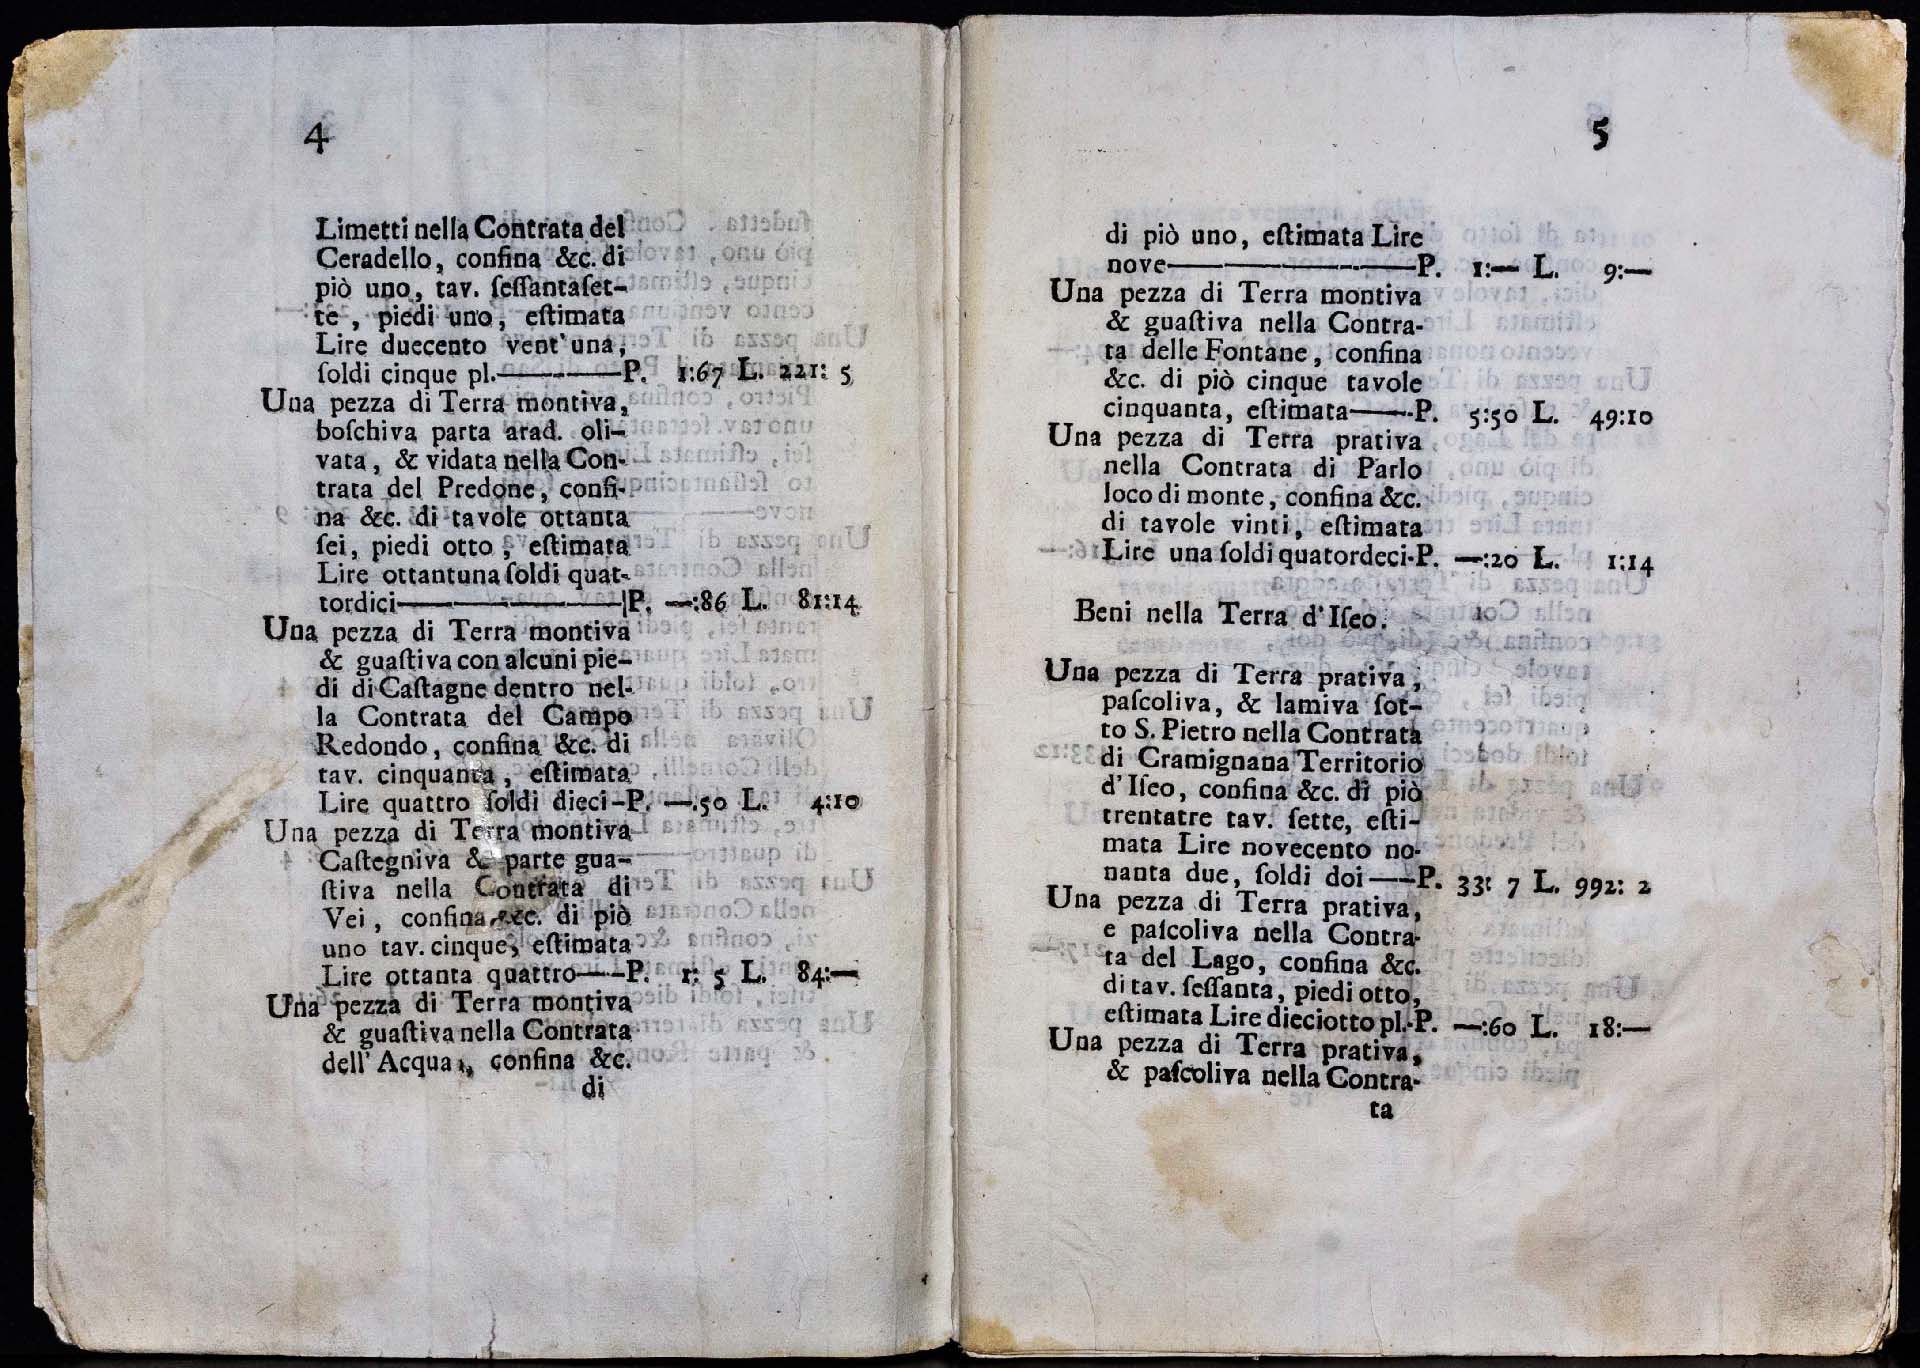 4
Limetti nella Contrata del
Ceradello, confina &c. di
piò uno, tav. ſeſſantaſet-
te, piedi uno, eſtimata
Lire duecento vent'una,
ſoldi cinque pl.——P. 1:67 L. 221: 5
Una pezza di Terra montiva,
boſchiva parta arad. oli-
vata, & vidata nella Con-
trata del Predone, confi-
na &c. di tavole ottanta
ſei, piedi otto, eſtimata
Lire ottantuna ſoldi quat-
tordici——P. —:86 L. 81:14
Una pezza di Terra montiva
& guaſtiva con alcuni pie-
di di Caſtagne dentro nel-
la Contrata del Campo
Redondo, confina &c. di
tav. cinquanta, eſtimata
Lire quattro ſoldi dieci-P. —.50 L. 4:10
Una pezza di Terra montiva
Caſtegniva & parte gua-
ſtiva nella Contrata di
Vei, confina &c. di piò
uno tav. cinque, eſtimata
Lire ottanta quattro——P. 1: 5 L. 84:—
Una pezza di Terra montiva
& guaſtiva nella Contrata
dell' Acqua, confina &c.
di
5
di piò uno, eſtimata Lire
nove——P. 1:— L. 9:—
Una pezza di Terra montiva
& guaſtiva nella Contra-
ta delle Fontane, confina
&c. di piò cinque tavole
cinquanta, eſtimata——P. 5:50 L. 49:10
Una pezza di Terra prativa
nella Contrata di Parlo
loco di monte, confina &c.
di tavole vinti, eſtimata
Lire una ſoldi quatordeci-P. —:20 L. 1:14
Beni nella Terra d'Iſeo.
Una pezza di Terra prativa,
paſcoliva, & lamiva ſot-
to S. Pietro nella Contrata
di Gramignana Territorio
d'Iſeo, confina &c. di piò
trentatre tav. ſette, eſti-
mata Lire novecento no-
nanta due, ſoldi doi——P. 33: 7 L. 992: 2
Una pezza di Terra prativa,
e paſcoliva nella Contra-
ta del Lago, confina &c.
di tav. ſeſſanta, piedi otto,
eſtimata Lire dieciotto pl.-P. —:60 L. 18:—
Una pezza di Terra prativa,
& paſcoliva nella Contra-
ta